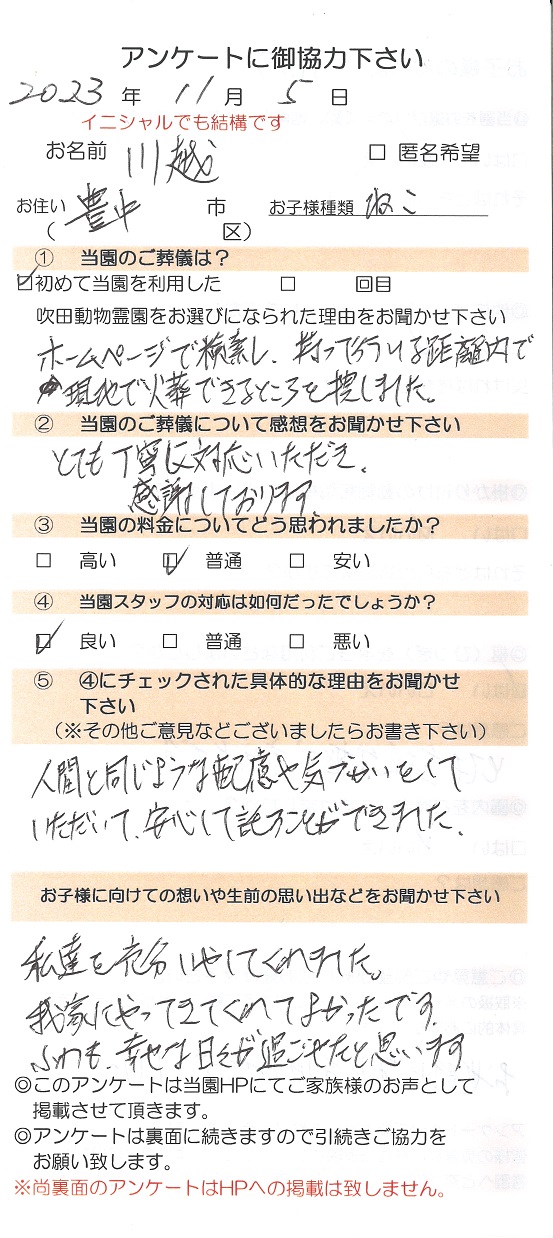 アンケートに御協力下さい
2023 年 11 月 5 日
イニシャルでも結構です
お名前 川越 □ 匿名希望
お住い 豊中 市 お子様種類 ねこ
（ 区）
① 当園のご葬儀は？
☑初めて当園を利用した □ 回目
吹田動物霊園をお選びになられた理由をお聞かせ下さい
ホームページで検索し、持って行ける距離内で
現地で火葬できるところを探しました。
② 当園のご葬儀について感想をお聞かせ下さい
とても丁寧に対応いただき、
感謝しております。
③ 当園の料金についてどう思われましたか？
□ 高い ☑ 普通 □ 安い
④ 当園スタッフの対応は如何だったでしょうか？
☑ 良い □ 普通 □ 悪い
⑤ ④にチェックされた具体的な理由をお聞かせ
下さい
（※その他ご意見などございましたらお書き下さい）
人間と同じような配慮や気づかいをして
いただいて、安心して託すことができました。
お子様に向けての想いや生前の思い出などをお聞かせ下さい
私達を充分いやしてくれました。
我家にやってきてくれてよかったです。
幸せな日々が過ごせたと思います
◎このアンケートは当園HPにてご家族様のお声として
掲載させて頂きます。
◎アンケートは裏面に続きますので引続きご協力を
お願い致します。
※尚裏面のアンケートはHPへの掲載は致しません。